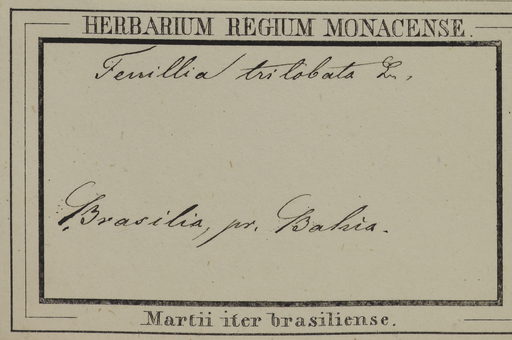 HERBARIUM REGIUM MONACENSE.
Feuillia trilobata L.
Brasilia, pr. Bahia.
Martii iter brasiliense.